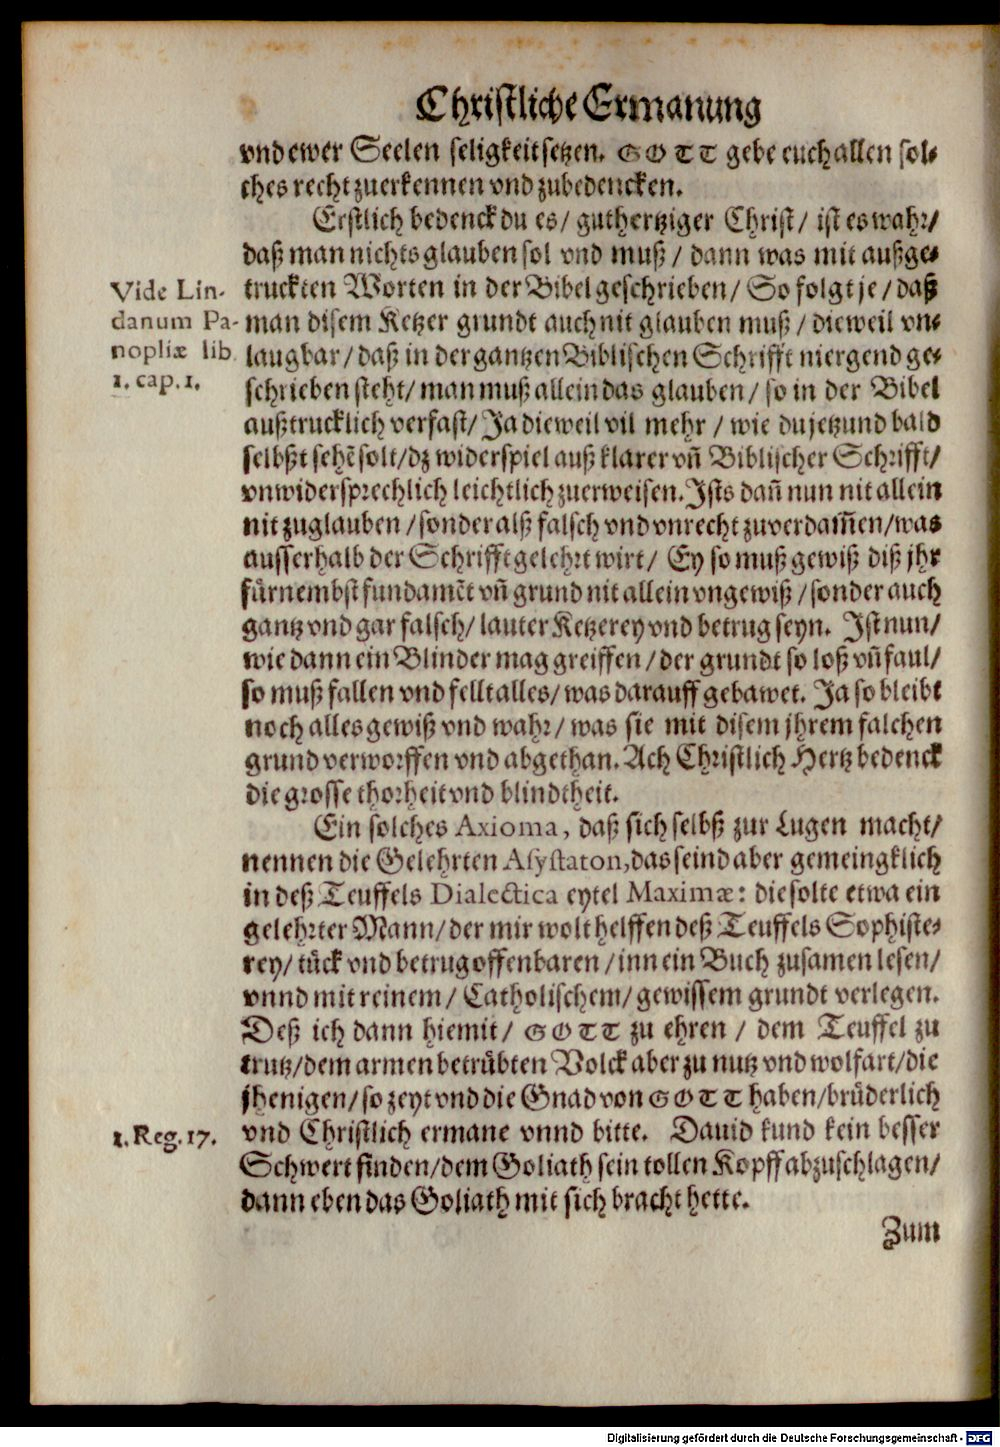 Christliche Ermanung
vnd ewer Seelen seligkeit setzen. GOTT gebe euch allen sol⸗
ches recht zuerkennen vnd zubedencken.
Erstlich bedenck du es/ guthertziger Christ/ ist es wahr/
daß man nichts glauben sol vnd muß/ dann was mit außge⸗
Vide Lin-
truckten Worten in der Bibel geschrieben/ So folgt je/ daß
danum Pa-
man disem Ketzer grundt auch nit glauben muß/ dieweil vn⸗
nopliæ lib.
laugbar/ daß in der gantzen Biblischen Schrifft niergend ge⸗
1. cap. 1.
schrieben steht/ man muß allein das glauben/ so in der Bibel
außtrucklich verfast/ Ja dieweil vil mehr/ wie du jetzund bald
selbßt sehẽ solt/ dz widerspiel auß klarer vñ Biblischer Schrifft/
vnwidersprechlich leichtlich zuerweisen. Ists dañ nun nit allein
nit zuglauben/ sonder alß falsch vnd vnrecht zuverdam̃en/ was
ausserhalb der Schrifft gelehrt wirt/ Ey so muß gewiß diß jhr
fürnembst fundamẽt vñ grund nit allein vngewiß/ sonder auch
gantz vnd gar falsch/ lauter Ketzerey vnd betrug seyn. Ist nun/
wie dann ein Blinder mag greiffen/ der grundt so loß vñ faul/
so muß fallen vnd fellt alles/ was darauff gebawet. Ja so bleibt
noch alles gewiß vnd wahr/ was sie mit disem jhrem falchen
grund verworffen vnd abgethan. Ach Christlich Hertz bedenck
die grosse thorheit vnd blindtheit.
Ein solches Axioma, daß sich selbß zur Lugen macht/
nennen die Gelehrten Asystaton, das seind aber gemeingklich
in deß Teuffels Dialectica eytel Maximæ: die solte etwa ein
gelehrter Mann/ der mir wolt helffen deß Teuffels Sophiste⸗
rey/ tück vnd betrug offenbaren/ inn ein Buch zusamen lesen/
vnnd mit reinem/ Catholischem/ gewissem grundt verlegen.
Deß ich dann hiemit/ GOTT zu ehren/ dem Teuffel zu
trutz/ dem armen betrübten Volck aber zu nutz vnd wolfart/ die
jhenigen/ so zeyt vnd die Gnad von GOTT haben/ brüderlich
1. Reg. 17.
vnd Christlich ermane vnnd bitte. Dauid kund kein besser
Schwert finden/ dem Goliath sein tollen Kopff abzuschlagen/
dann eben das Goliath mit sich bracht hette.
Zum
Digitalisierung gefördert durch die Deutsche Forschungsgemeinschaft - DFG